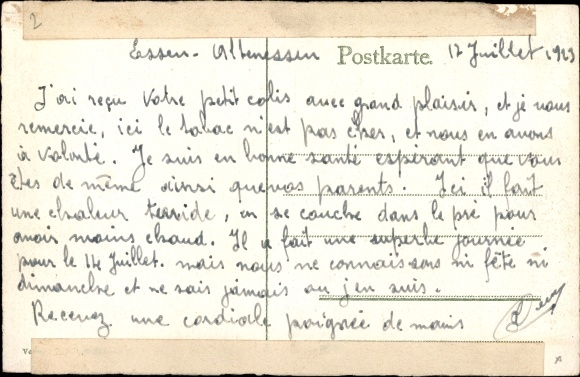 2
Essen-Altenessen Postkarte. 17 Juillet 1923
J'ai reçu votre petit colis avec grand plaisir, et je vous
remercie, ici le tabac n'est pas cher, et nous en avons
à volonté. Je suis en bonne santé espérant que vous
êtes de même ainsi que vos parents. Ici il fait
une chaleur terrible, on se couche dans le pré pour
avoir moins chaud. Il a fait une superbe journée
pour le 14 Juillet. mais nous ne connaissons ni fête ni
dimanche et ne sais jamais ou j'en suis.
Recevez une cordiale poignée de mains